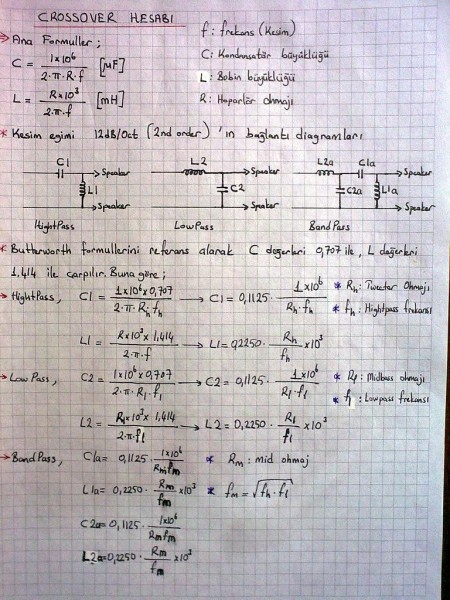 CROSSOVER HESABI
f : frekans (Kesim)
Ana Formuller ;
C: Kondansatör büyüklüğü
C = 1x10⁶ / 2.π.R.f [µF]
L: Bobin büyüklüğü
L = Rx10³ / 2.π.f [mH]
R: Hoparlör ohmajı
* Kesim eğimi 12dB/Oct (2nd order) 'in bağlantı diagramları
C1 Speaker L2 Speaker L2a C1a Speaker
L1 C2 C2a L1a
Speaker Speaker Speaker
HightPass LowPass BandPass
* Butterworth formullerini referans alarak C değerleri 0,707 ile, L değerleri
1,414 ile çarpılır. Buna göre ;
HightPass, C1 = 1x10⁶x0,707 / 2.π.Rh.fh → C1 = 0,1125 . 1x10⁶ / Rh.fh * Rh : Tweeter Ohmajı
* fh : Hightpass frekansı
L1 = Rx10³x1,414 / 2.π.f → L1 = 0,2250 . Rh / fh x10³
LowPass, C2 = 1x10⁶x0,707 / 2.π.Rl.fl → C2 = 0,1125 . 1x10⁶ / Rl.fl * Rl : Midbass ohmajı
* fl : Lowpass frekansı
L2 = Rlx10³x1,414 / 2.π.fl → L2 = 0,2250 . Rl / fl x10³
BandPass, C1a = 0,1125 . 1x10⁶ / Rm.fm * Rm : Mid ohmaj
L1a = 0,2250 . Rm / fm x10³ * fm = √fh.fl
C2a = 0,1125 . 1x10⁶ / Rm.fm
L2a = 0,2250 . Rm / fm x10³